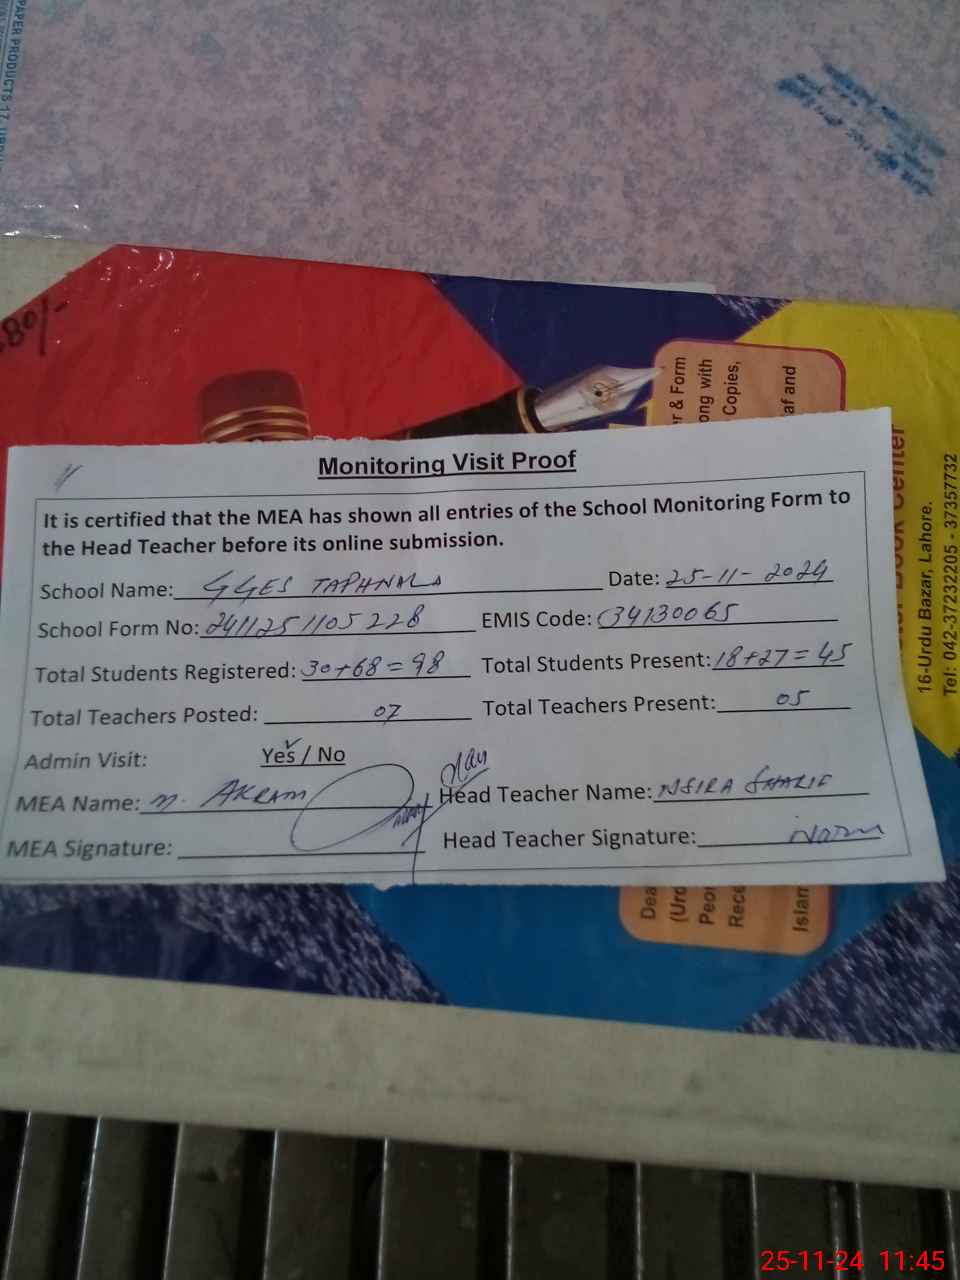 PAPER PRODUCTS 17, URDU
80/-
r & Form
ong with
Copies,
af and
Book Center
16-Urdu Bazar, Lahore.
Tel: 042-37232205 - 37357732
Monitoring Visit Proof
It is certified that the MEA has shown all entries of the School Monitoring Form to
the Head Teacher before its online submission.
School Name: GGES TAPHNALA Date: 25-11-2024
School Form No: 2411251105228 EMIS Code: 34130065
Total Students Registered: 30+68=98 Total Students Present: 18+27=45
Total Teachers Posted: 07 Total Teachers Present: 05
Admin Visit: Yes / No
MEA Name: M. AKRAM Head Teacher Name: NSIRA SHARIF
MEA Signature: Head Teacher Signature:
Dea
(Urd
Peor
Rece
Islan
25-11-24 11:45